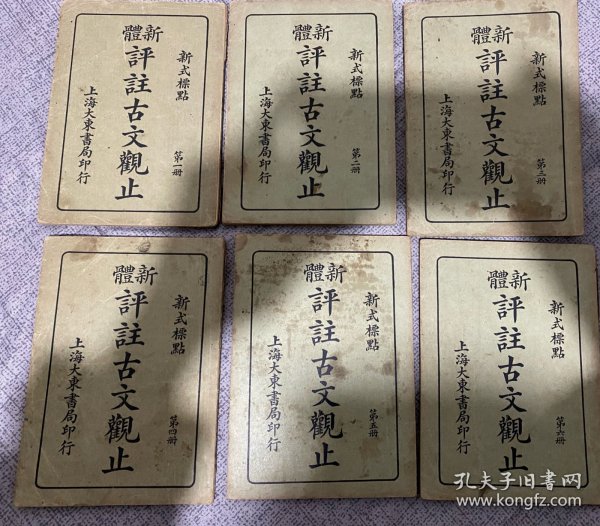 新式標點
新體
評註古文觀止
第一册
上海大東書局印行
新式標點
新體
評註古文觀止
第二册
上海大東書局印行
新式標點
新體
評註古文觀止
第三册
上海大東書局印行
新式標點
新體
評註古文觀止
第四册
上海大東書局印行
新式標點
新體
評註古文觀止
第五册
上海大東書局印行
新式標點
新體
評註古文觀止
第六册
上海大東書局印行
孔夫子旧书网
www.kongfz.com